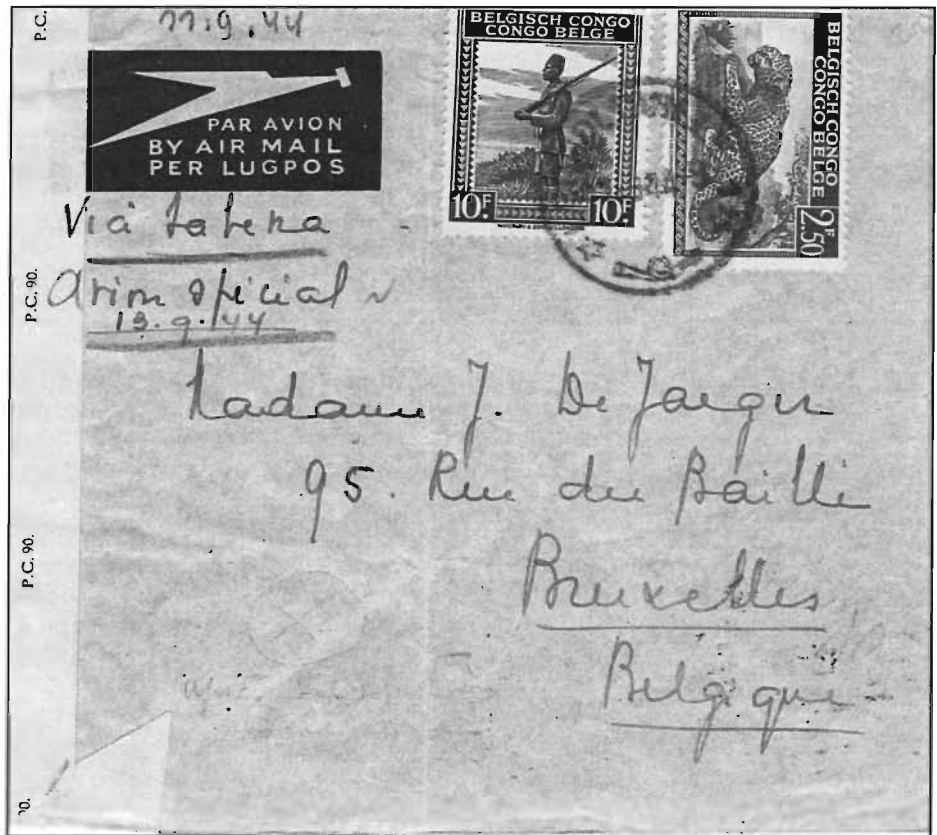 P.C.
11.9.44
PAR AVION
BY AIR MAIL
PER LUGPOS
BELGISCH CONGO
CONGO BELGE
10F. 10F.
BELGISCH CONGO
CONGO BELGE
2.50F
Via Sabena
Avion spécial
13.9.44
P.C. 90.
Madame J. De Jaeger
95. Rue du Bailli
Bruxelles
Belgique
P.C. 90.
90.